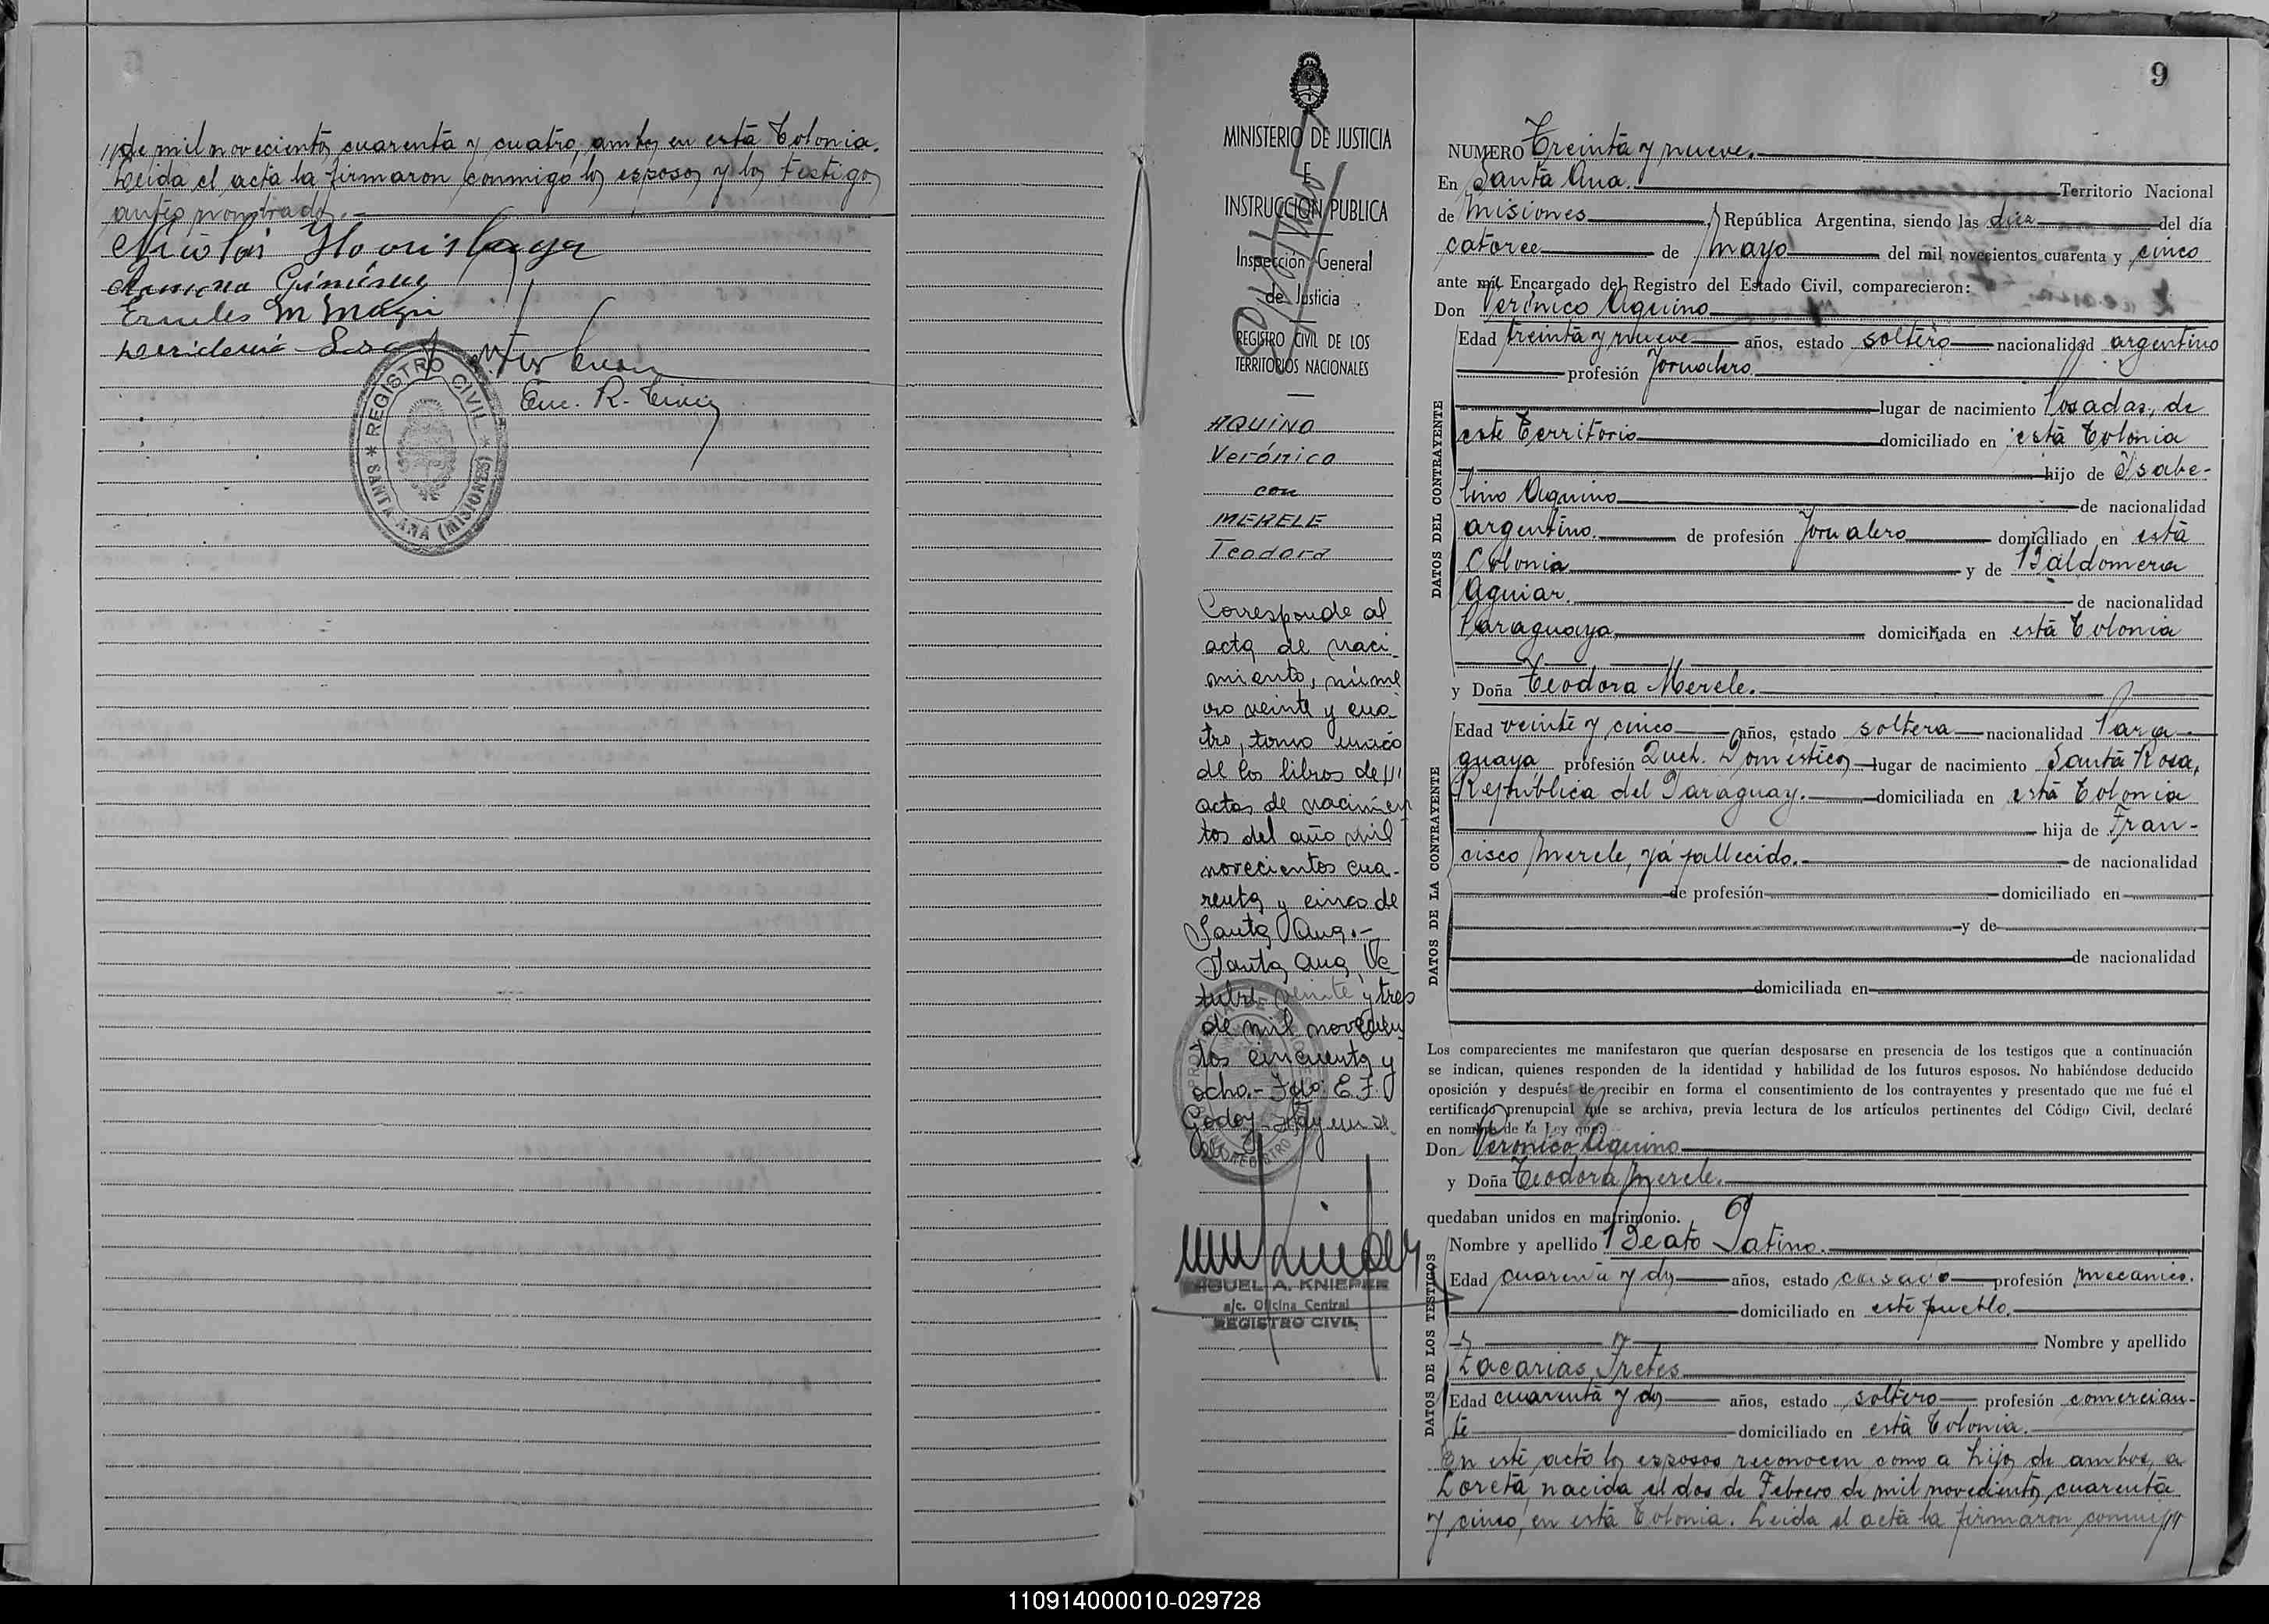 //de mil novecientos cuarenta y cuatro, ambos en está Colonia.
Leida el acta la firmaron conmigo los esposos y los testigos
antes nombrados.
Ramona Giménez
Enc. R. Civil
* REGISTRO CIVIL *
SANTA ANA (MISIONES)
MINISTERIO DE JUSTICIA
E
INSTRUCCION PUBLICA
Inspección General
de Justicia
REGISTRO CIVIL DE LOS
TERRITORIOS NACIONALES
AQUINO
Verónico
con
MERELE
Teodora
Corresponde al
acta de naci-
miento, núme
ro veinte y cua
tro, tomo único
de los libros de
actas de nacimien
tos del año mil
novecientos cua-
renta y cinco de
Santa Ana.-
Santa Ana, Oc
tubre veinte y tres
de mil novecien
tos cincuenta y
ocho.- Fdo: E.F.
Godoy - Hay un se
llo
MIGUEL A. KNIEPER
a/c. Oficina Central
REGISTRO CIVIL
9
NUMERO Treinta y nueve.
En Santa Ana. Territorio Nacional
de Misiones, República Argentina, siendo las diez del día
catorce de mayo del mil novecientos cuarenta y cinco
ante mí, Encargado del Registro del Estado Civil, comparecieron:
Don Verónico Aquino
DATOS DEL CONTRAYENTE
Edad treinta y nueve años, estado soltero nacionalidad argentino
profesión Jornalero
lugar de nacimiento Posadas, de
este Territorio domiciliado en está Colonia
hijo de Isabe-
lino Aquino de nacionalidad
argentino. de profesión Jornalero domiciliado en está
Colonia y de Baldomera
Aguiar. de nacionalidad
Paraguaya domiciliada en está Colonia
y Doña Teodora Merele.
DATOS DE LA CONTRAYENTE
Edad veinte y cinco años, estado soltera nacionalidad Para-
guaya profesión Queh. Domésticos lugar de nacimiento Santa Rosa,
República del Paraguay. domiciliada en está Colonia
hija de Fran-
cisco Merele, ya fallecido. de nacionalidad
de profesión domiciliado en
y de
de nacionalidad
domiciliada en
Los comparecientes me manifestaron que querían desposarse en presencia de los testigos que a continuación
se indican, quienes responden de la identidad y habilidad de los futuros esposos. No habiéndose deducido
oposición y después de recibir en forma el consentimiento de los contrayentes y presentado que me fué el
certificado prenupcial que se archiva, previa lectura de los artículos pertinentes del Código Civil, declaré
en nombre de la Ley que:
Don Verónico Aquino
y Doña Teodora Merele.
quedaban unidos en matrimonio.
DATOS DE LOS TESTIGOS
Nombre y apellido Beato Patino.
Edad cuarenta y dos años, estado casado profesión mecanico.
domiciliado en este pueblo.
y Nombre y apellido
Zacarias Fretes
Edad cuarenta y dos años, estado soltero profesión comercian-
te domiciliado en está Colonia.
En este acto los esposos reconocen como a hijos de ambos, a
Loreta nacida el dos de Febrero de mil novecientos cuarenta
y cinco, en está Colonia. Leida el acta la firmaron conmigo
110914000010-029728